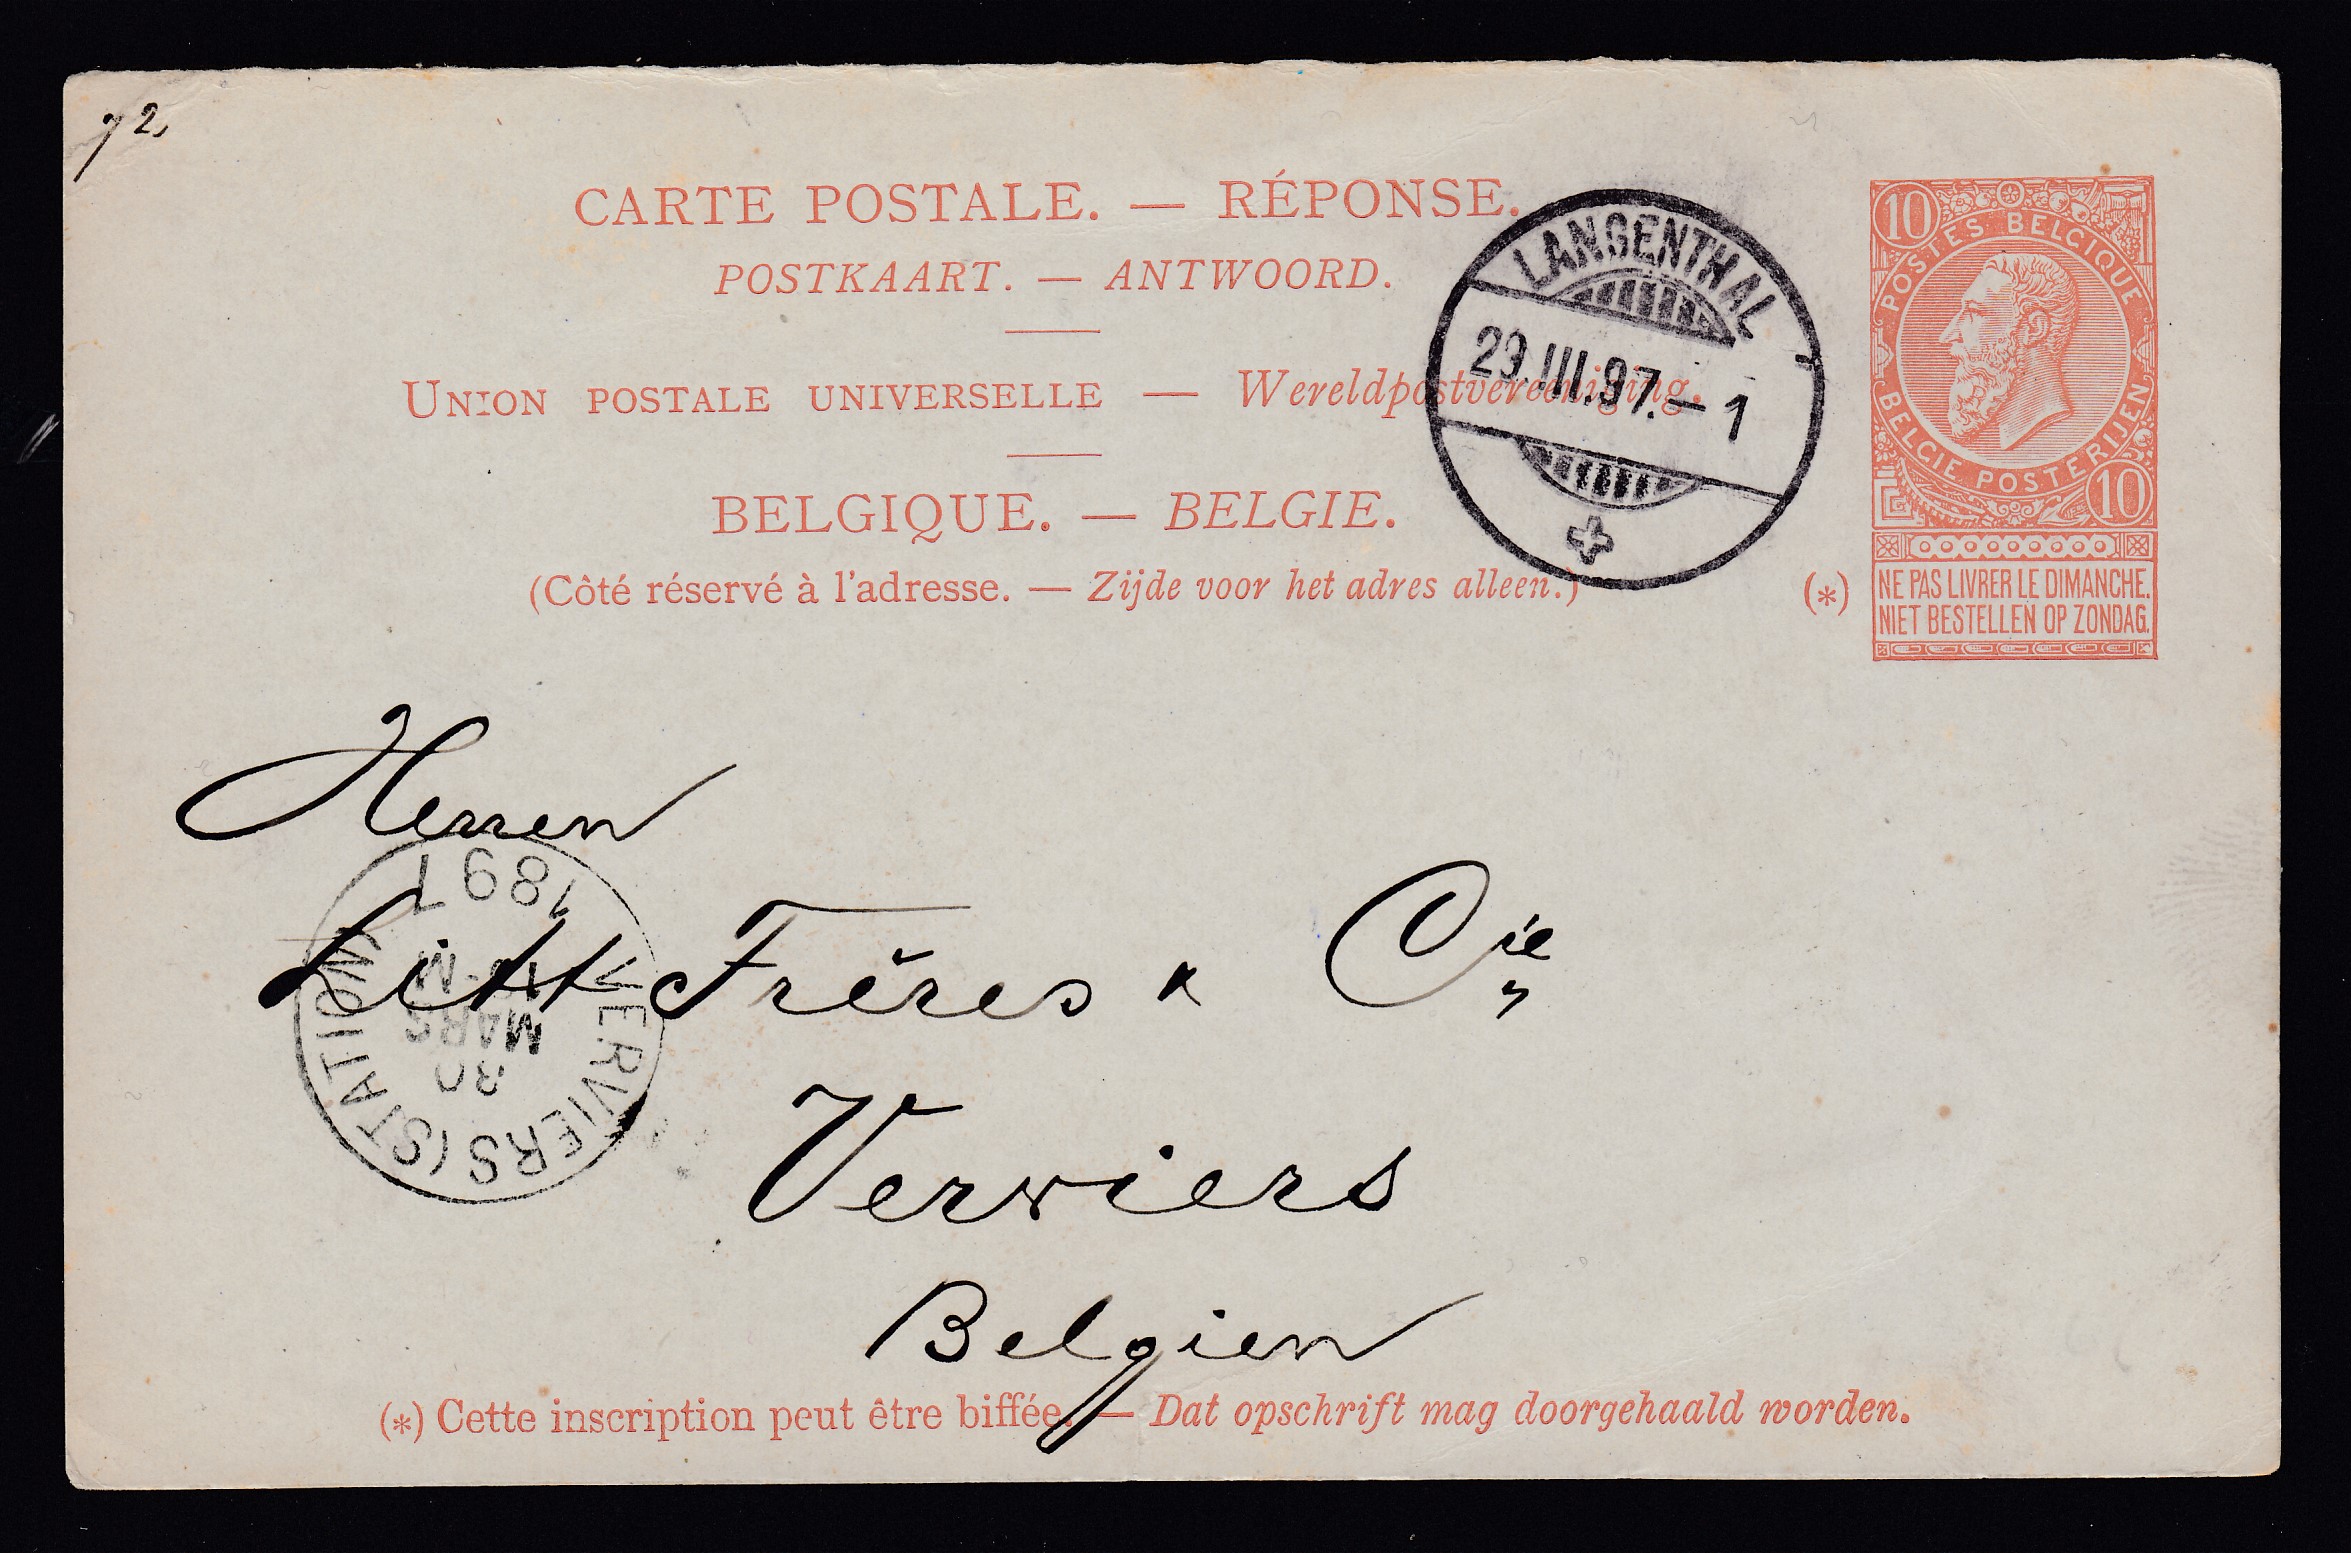 72,
CARTE POSTALE. — RÉPONSE.
POSTKAART. — ANTWOORD.
UNION POSTALE UNIVERSELLE — Wereldpostvereeniging.
BELGIQUE. — BELGIE.
(Côté réservé à l'adresse. — Zijde voor het adres alleen.)
LANGENTHAL
29.III.97.–1
10
POSTES BELGIQUE
BELGIE POSTERIJEN
10
(*)
NE PAS LIVRER LE DIMANCHE.
NIET BESTELLEN OP ZONDAG.
Herren
Frères & Cie
Verviers
Belgien
VERVIERS (STATION)
30
MARS
1897
(*) Cette inscription peut être biffée. — Dat opschrift mag doorgehaald worden.